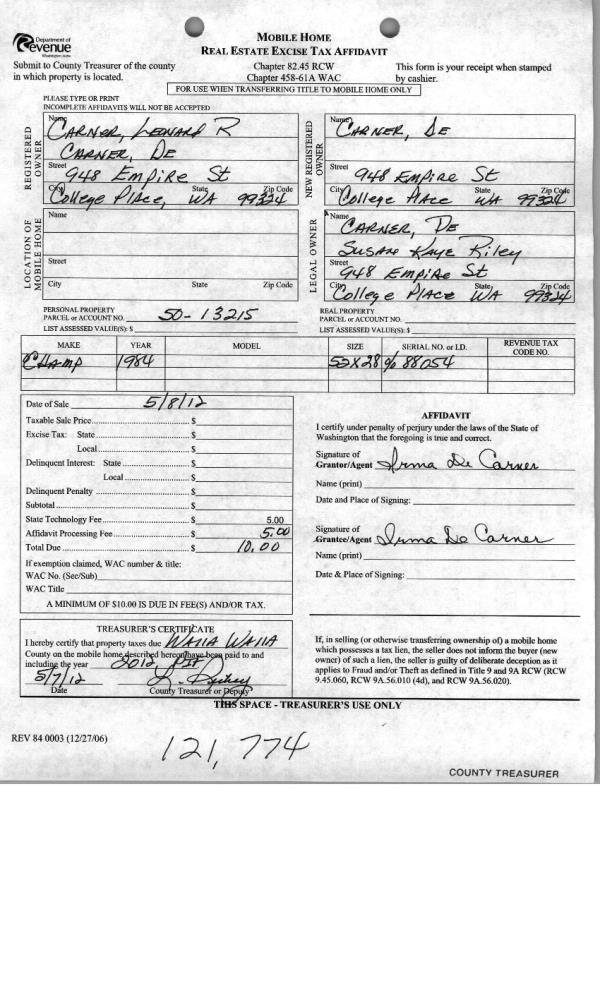 Department of
Revenue
Washington State
MOBILE HOME
REAL ESTATE EXCISE TAX AFFIDAVIT
Submit to County Treasurer of the county
in which property is located.
Chapter 82.45 RCW
Chapter 458-61A WAC
This form is your receipt when stamped
by cashier.
FOR USE WHEN TRANSFERRING TITLE TO MOBILE HOME ONLY
PLEASE TYPE OR PRINT
INCOMPLETE AFFIDAVITS WILL NOT BE ACCEPTED
REGISTERED OWNER
Name CARNER, LEONARD R
CARNER, DE
Street 948 EMPIRE St
City College Place, State WA Zip Code 99324
NEW REGISTERED OWNER
Name CARNER, DE
Street 948 EMPIRE St
City College Place State WA Zip Code 99324
LOCATION OF MOBILE HOME
Name
Street
City State Zip Code
LEGAL OWNER
Name CARNER, DE
SUSAN KAYE Riley
Street 948 EMPIRE St
City College Place State WA Zip Code 99324
PERSONAL PROPERTY
PARCEL or ACCOUNT NO. 50-13215
LIST ASSESSED VALUE(S): $
REAL PROPERTY
PARCEL or ACCOUNT NO.
LIST ASSESSED VALUE(S): $
MAKE YEAR MODEL SIZE SERIAL NO. or I.D. REVENUE TAX CODE NO.
CHAMP 1984 28 88054
Date of Sale 5/8/12
Taxable Sale Price $
Excise Tax: State $
Local $
Delinquent Interest: State $
Local $
Delinquent Penalty $
Subtotal $
State Technology Fee $ 5.00
Affidavit Processing Fee $ 5.00
Total Due $ 10.00
If exemption claimed, WAC number & title:
WAC No. (Sec/Sub)
WAC Title
A MINIMUM OF $10.00 IS DUE IN FEE(S) AND/OR TAX.
AFFIDAVIT
I certify under penalty of perjury under the laws of the State of
Washington that the foregoing is true and correct.
Signature of
Grantor/Agent Irma De Carner
Name (print)
Date and Place of Signing:
Signature of
Grantee/Agent Irma De Carner
Name (print)
Date & Place of Signing:
TREASURER'S CERTIFICATE
I hereby certify that property taxes due WAllA WAllA
County on the mobile home described hereon have been paid to and
including the year 2012
5/7/12
Date County Treasurer or Deputy
If, in selling (or otherwise transferring ownership of) a mobile home
which possesses a tax lien, the seller does not inform the buyer (new
owner) of such a lien, the seller is guilty of deliberate deception as it
applies to Fraud and/or Theft as defined in Title 9 and 9A RCW (RCW
9.45.060, RCW 9A.56.010 (4d), and RCW 9A.56.020).
THIS SPACE - TREASURER'S USE ONLY
REV 84 0003 (12/27/06)
121,774
COUNTY TREASURER